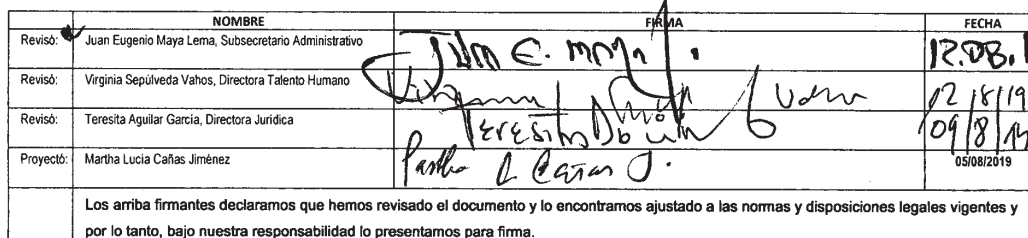 NOMBRE FIRMA FECHA
Revisó: Juan Eugenio Maya Lema, Subsecretario Administrativo Juan E. Maya
Revisó: Virginia Sepúlveda Vahos, Directora Talento Humano 12/8/19
Revisó: Teresita Aguilar García, Directora Jurídica Teresita 09/8/19
Proyectó: Martha Lucia Cañas Jiménez L Cañas J. 05/08/2019
Los arriba firmantes declaramos que hemos revisado el documento y lo encontramos ajustado a las normas y disposiciones legales vigentes y
por lo tanto, bajo nuestra responsabilidad lo presentamos para firma.